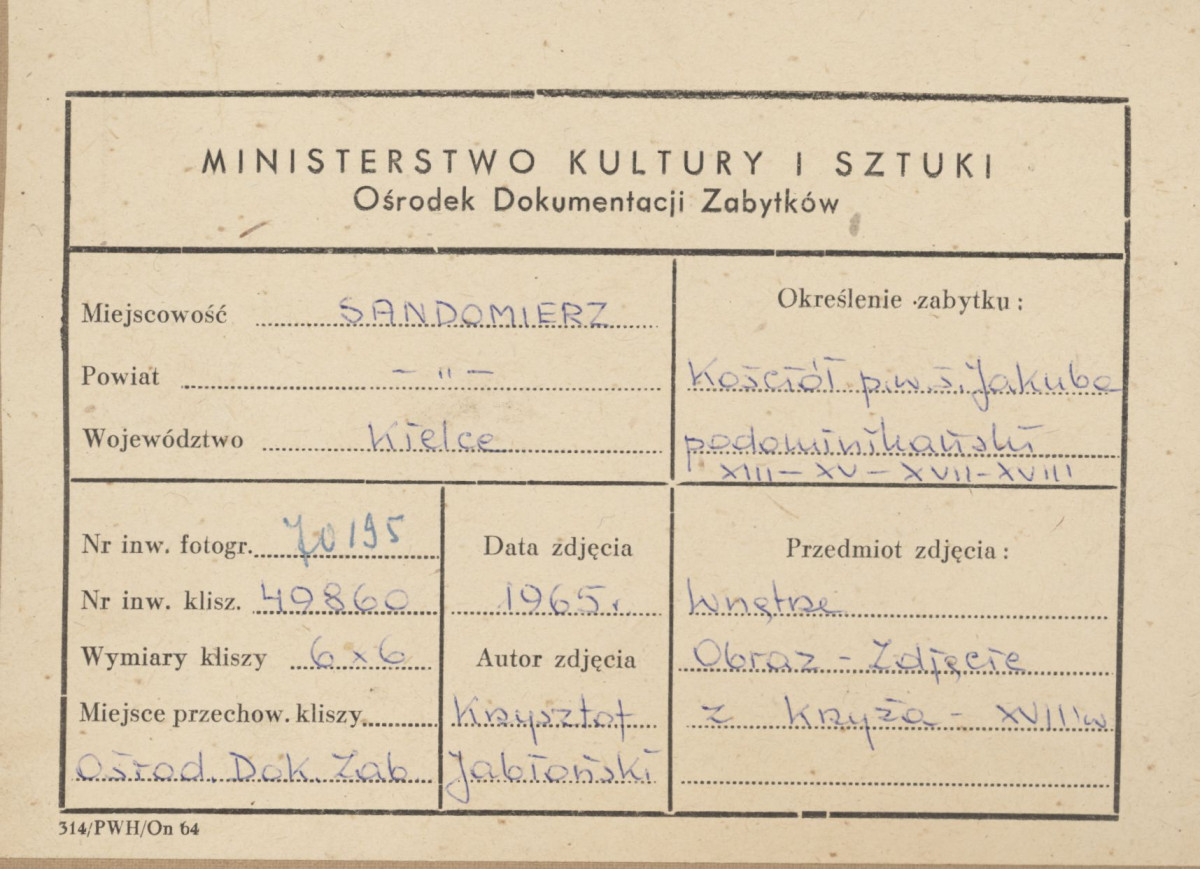 MINISTERSTWO KULTURY I SZTUKI
Ośrodek Dokumentacji Zabytków
Miejscowość SANDOMIERZ
Powiat – " –
Województwo Kielce
Określenie zabytku:
Kościół p.w. ś. Jakuba
podominikański
XIII – XV – XVII – XVIII
Nr inw. fotogr. 70195
Nr inw. klisz. 49860
Wymiary kliszy 6 x 6
Miejsce przechow. kliszy
Ośrod. Dok. Zab
Data zdjęcia
1965.
Autor zdjęcia
Krzysztof
Jabłoński
Przedmiot zdjęcia:
Wnętrze
Obraz – Zdjęcie
z krzyża – XVIII w
314/PWH/On 64